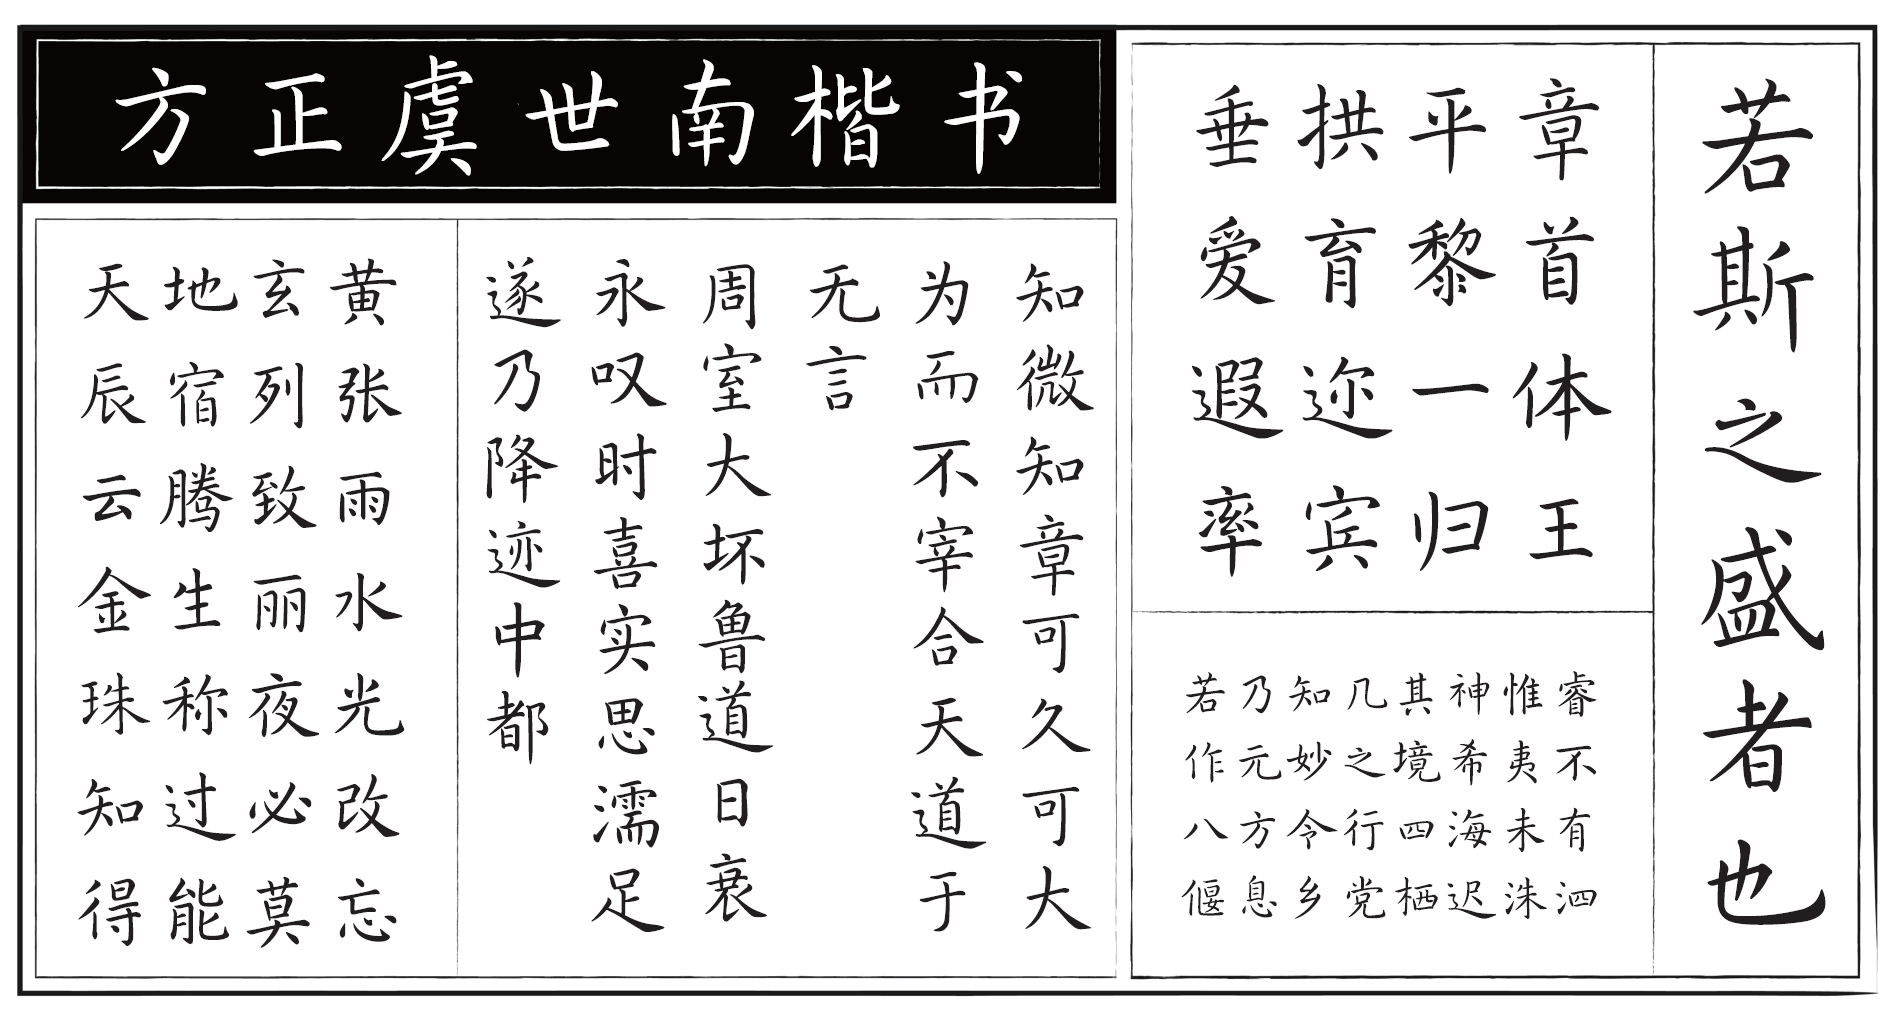 方正虞世南楷书
天地玄黄
辰宿列张
云腾致雨
金生丽水
珠称夜光
知过必改
得能莫忘
知微知章可久可大
为而不宰合天道于
无言
周室大坏鲁道日衰
永叹时喜实思濡足
遂乃降迹中都
垂拱平章
爱育黎首
遐迩一体
率宾归王
若乃知几其神惟睿
作元妙之境希夷不
八方令行四海未有
偃息乡党栖迟洙泗
若斯之盛者也